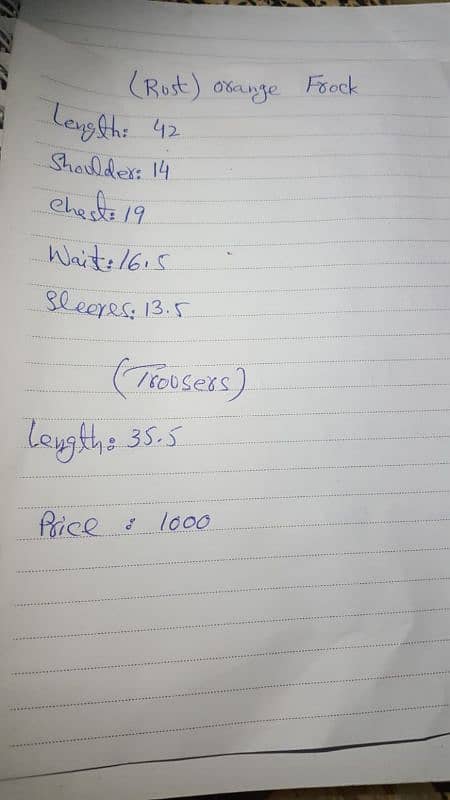 (Rust) orange Frock
Length: 42
Shoulder: 14
chest: 19
Wait: 16.5
Sleeves: 13.5
(Trousers)
Length: 35.5
Price : 1000